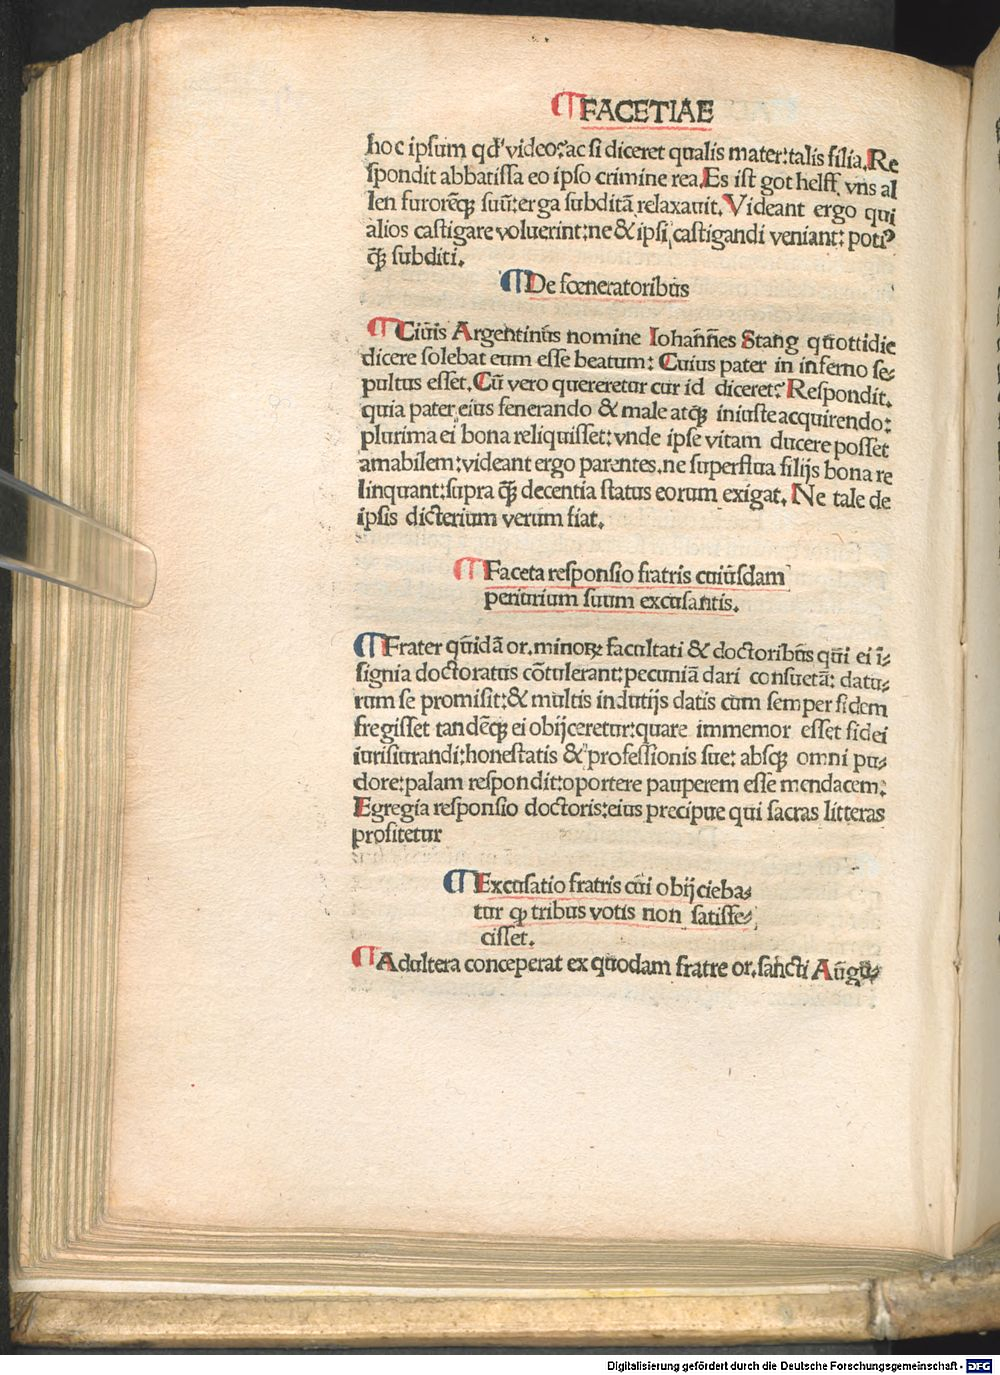 ¶FACETIAE
hoc ipsum qđ video: ac si diceret qualis mater: talis filia. Re
spondit abbatissa eo ipso crimine rea. Es ist got helff vns al
len furorēq; suū: erga subditā relaxauit. Videant ergo qui
alios castigare voluerint: ne & ipsi castigandi veniant: potiꝰ
q̄; subditi.
¶De fœneratoribus
¶Ciuis Argentinus nomine Iohannes Stang quottidie
dicere solebat eum esse beatum: Cuius pater in inferno se-
pultus esset. Cū vero quereretur cur id diceret? Respondit.
quia pater eius fenerando & male atq; iniuste acquirendo:
plurima ei bona reliquisset: vnde ipse vitam ducere posset
amabilem: videant ergo parentes. ne superflua filijs bona re
linquant: supra q̄; decentia status eorum exigat. Ne tale de
ipsis dicterium verum fiat.
¶Faceta responsio fratris cuiusdam
periurium suum excusantis.
¶Frater quidā or. minoꝝ facultati & doctoribus qui ei ī-
signia doctoratus cōtulerant: pecuniā dari consuetā: datu-
rum se promisit: & multis indutijs datis cum semper fidem
fregisset tandēq; ei obijceretur: quare immemor esset fidei
iurisiurandi: honestatis & professionis sue: absq; omni pu-
dore: palam respondit: oportere pauperem esse mendacem:
Egregia responsio doctoris: eius precipue qui sacras litteras
profitetur
¶Excusatio fratris cui obijcieba-
tur ꝙ tribus votis non satisfe-
cisset.
¶Adultera conceperat ex quodam fratre or. sancti Augu-
Digitalisierung gefördert durch die Deutsche Forschungsgemeinschaft - DFG